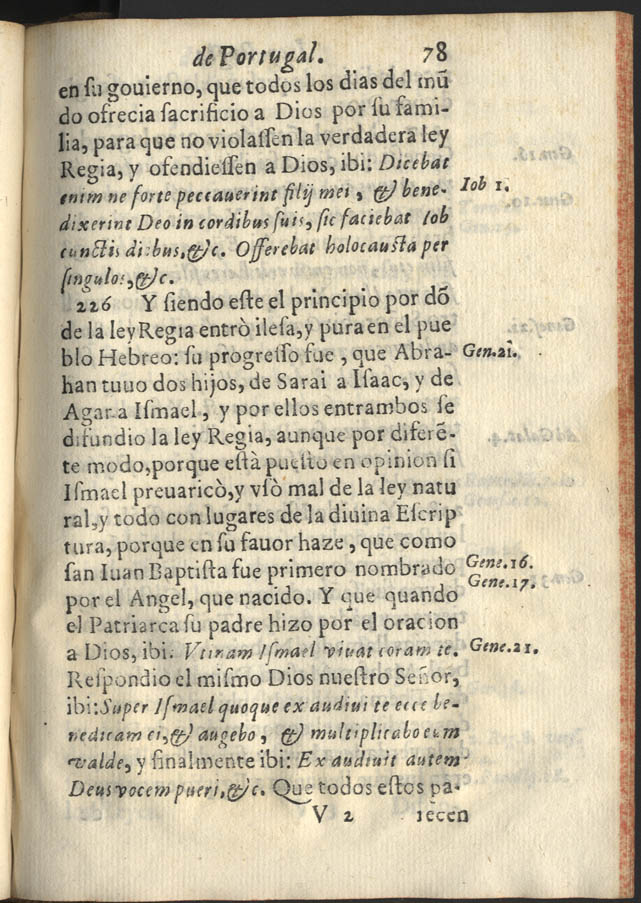 de Portugal. 78
en su gouierno, que todos los dias del mũ
do ofrecia sacrificio a Dios por su fami-
lia, para que no violassen la verdadera ley
Regia, y ofendiessen a Dios, ibi: Dicebat
enim ne forte peccauerint filij mei, & bene- Iob 1.
dixerint Deo in cordibus suis, sic faciebat Iob
cunctis diebus, &c. Offerebat holocausta per
singulos, &c.
226 Y siendo este el principio por dõ
de la ley Regia entrò ilesa, y pura en el pue
blo Hebreo: su progresso fue, que Abra- Gen. 21.
han tuuo dos hijos, de Sarai a Isaac, y de
Agar a Ismael, y por ellos entrambos se
difundio la ley Regia, aunque por diferẽ-
te modo, porque està puesto en opinion si
Ismael preuaricò, y vsò mal de la ley natu
ral, y todo con lugares de la diuina Escrip
tura, porque en su fauor haze, que como
san Iuan Baptista fue primero nombrado Gene. 16.
por el Angel, que nacido. Y que quando Gene. 17.
el Patriarca su padre hizo por el oracion
a Dios, ibi. Vtinam Ismael viuat coram te. Gene. 21.
Respondio el mismo Dios nuestro Señor,
ibi: Super Ismael quoque ex audiui te ecce be-
nedicam ei, & augebo, & multiplicabo eum
valde, y finalmente ibi: Ex audiuit autem
Deus vocem pueri, &c. Que todos estos pa-
V 2 recen